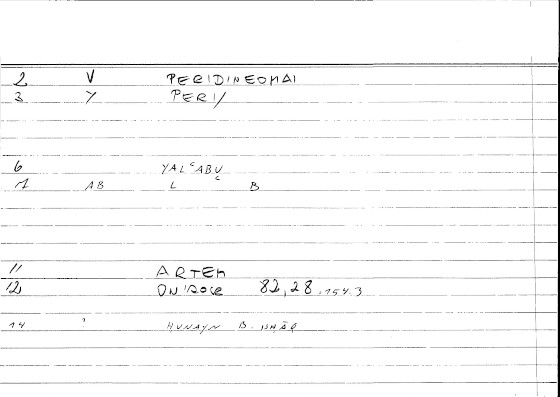 2 V PERIDINEOMAI
3 Y PERI/
6 YALʿABU
AB L B
11 ARTEM
12 82,28,154.3
14 HUNAYN B. ISHĀQ